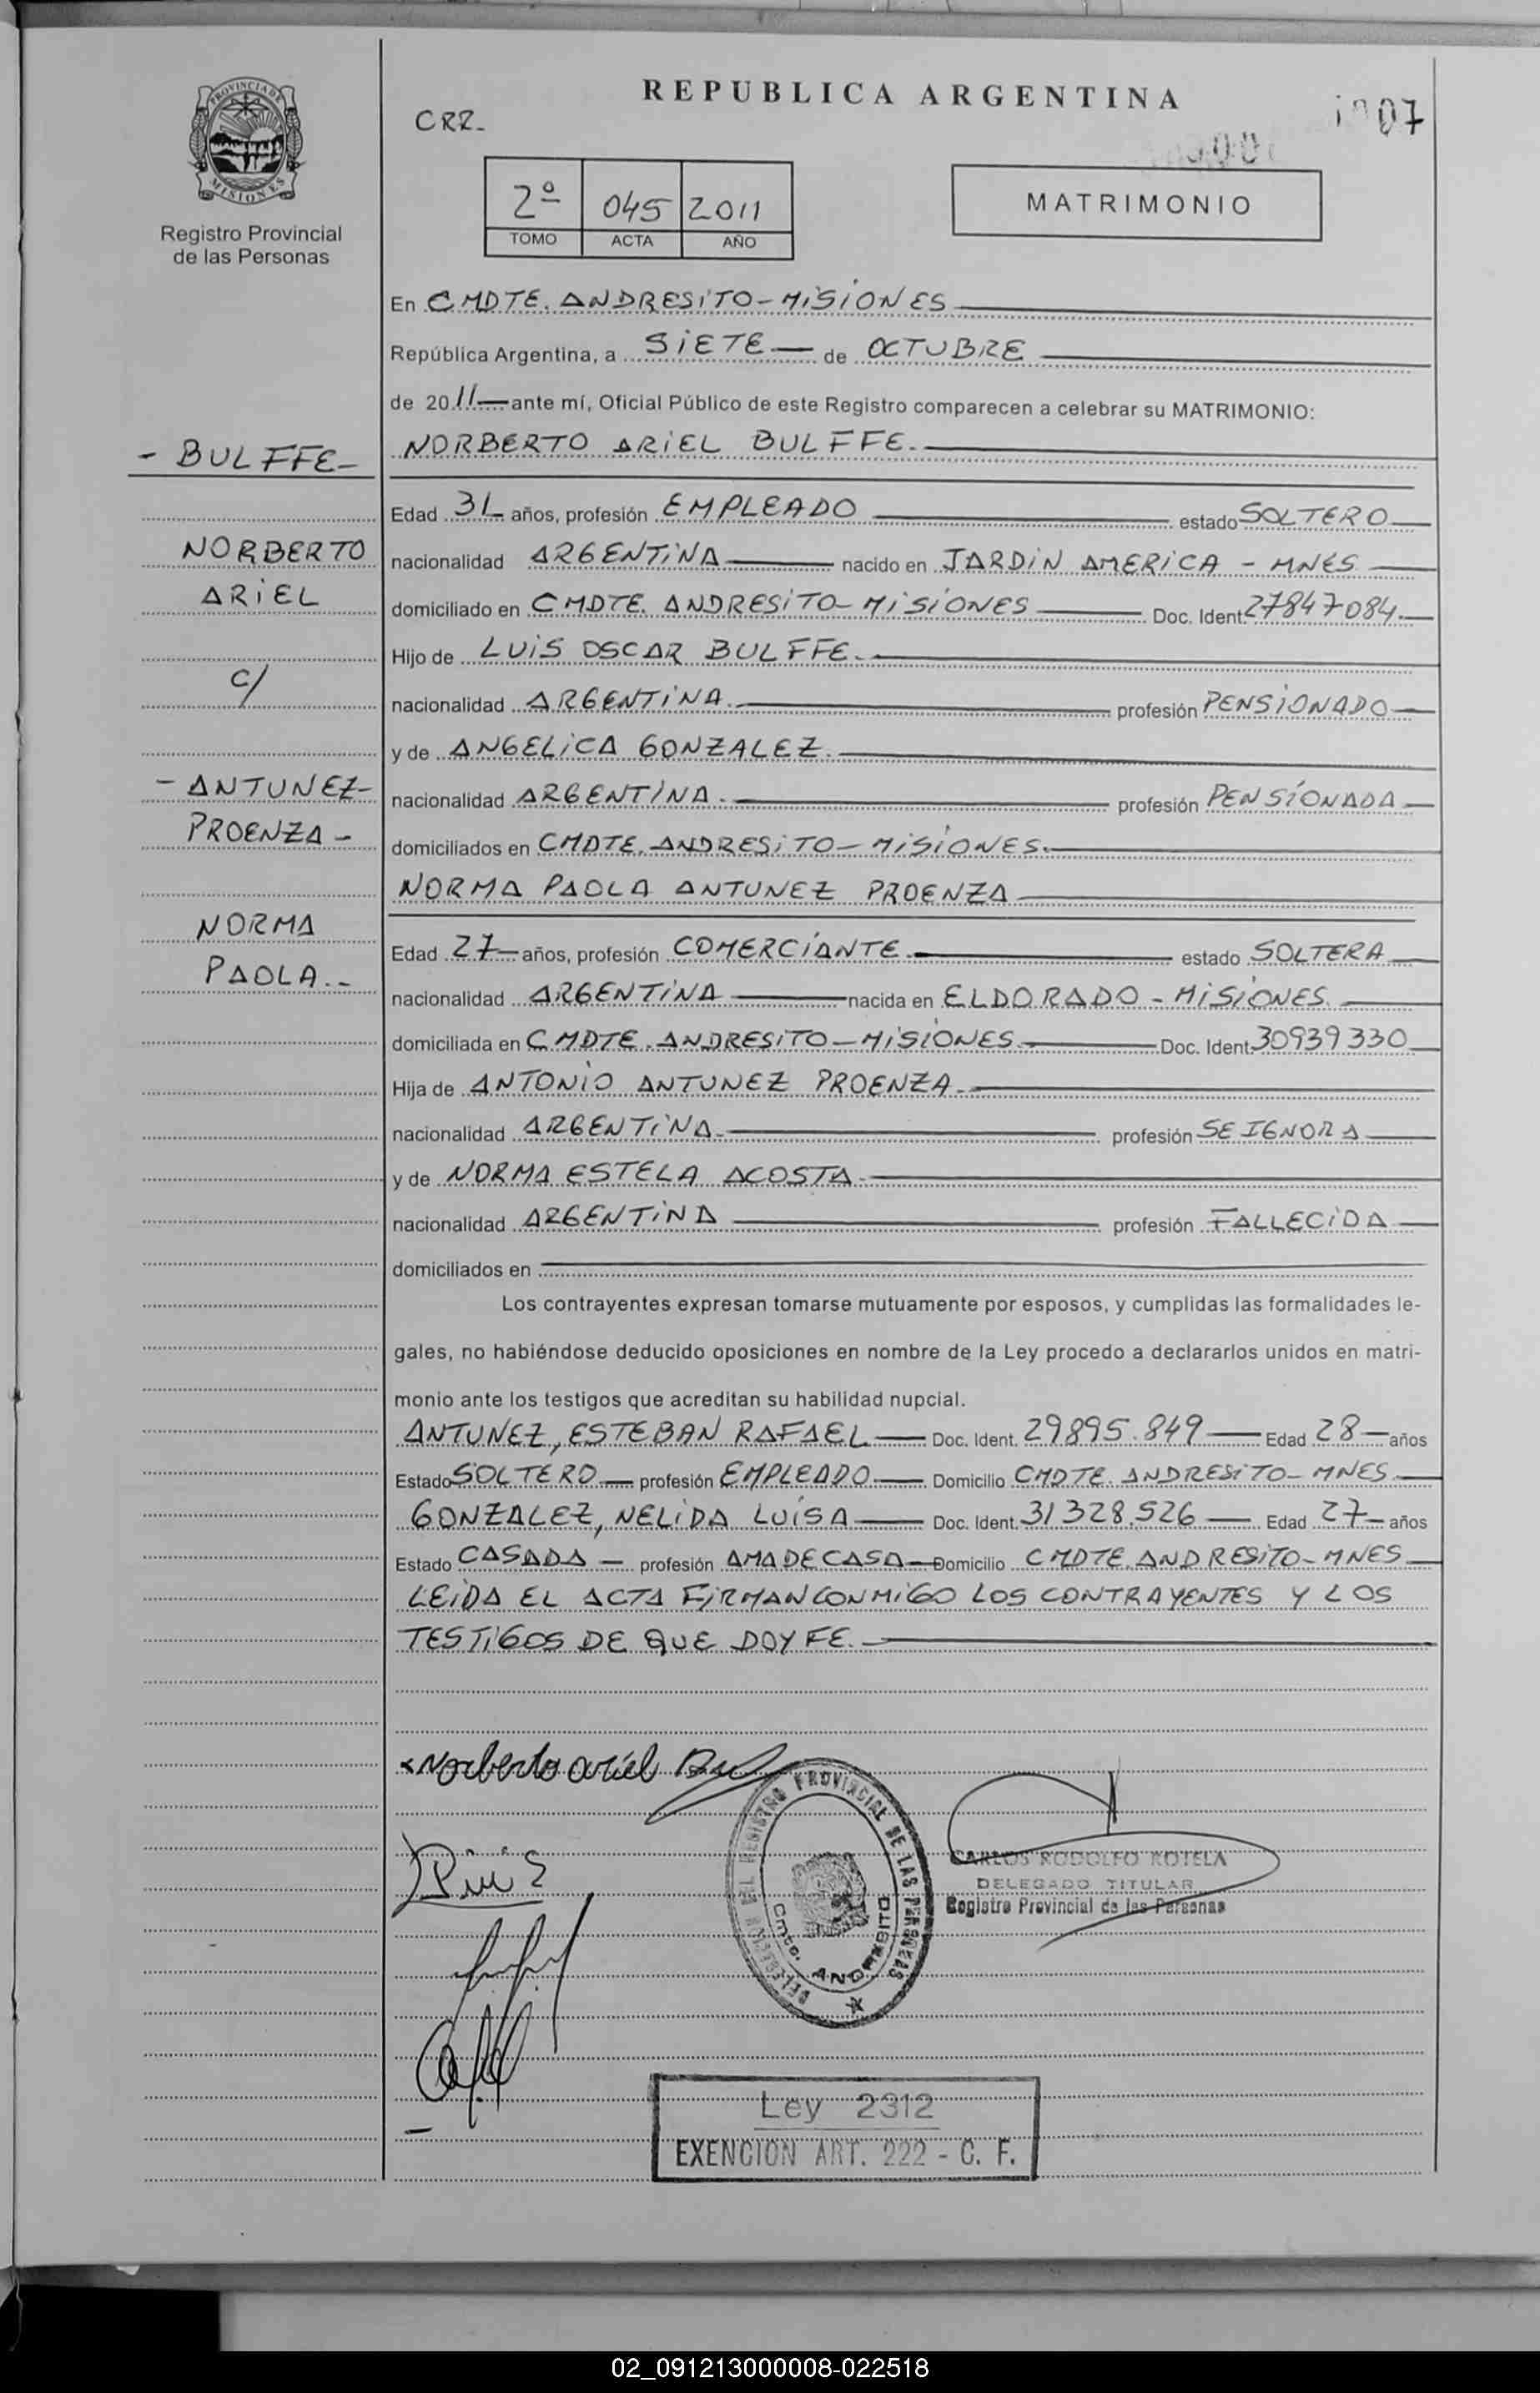 REPUBLICA ARGENTINA
CRR-
07
PROVINCIA DE
MISIONES
Registro Provincial
de las Personas
2º 045 2011
TOMO ACTA AÑO
MATRIMONIO
En CMDTE. ANDRESITO-MISIONES
República Argentina, a SIETE de OCTUBRE
de 2011 ante mí, Oficial Público de este Registro comparecen a celebrar su MATRIMONIO:
- BULFFE-
NORBERTO ARIEL BULFFE.
Edad 31 años, profesión EMPLEADO estado SOLTERO
NORBERTO
nacionalidad ARGENTINA nacido en JARDIN AMERICA - MNES
ARIEL
domiciliado en CMDTE. ANDRESITO-MISIONES Doc. Ident. 27847084.
Hijo de LUIS OSCAR BULFFE.
C/
nacionalidad ARGENTINA. profesión PENSIONADO
y de ANGELICA GONZALEZ.
- ANTUNEZ-
nacionalidad ARGENTINA. profesión PENSIONADA
PROENZA -
domiciliados en CMDTE. ANDRESITO-MISIONES.
NORMA PAOLA ANTUNEZ PROENZA
NORMA
Edad 27 años, profesión COMERCIANTE. estado SOLTERA
PAOLA.-
nacionalidad ARGENTINA nacida en ELDORADO - MISIONES.
domiciliada en CMDTE. ANDRESITO-MISIONES. Doc. Ident. 30939330
Hija de ANTONIO ANTUNEZ PROENZA.
nacionalidad ARGENTINA. profesión SE IGNORA
y de NORMA ESTELA ACOSTA.
nacionalidad ARGENTINA profesión FALLECIDA
domiciliados en
Los contrayentes expresan tomarse mutuamente por esposos, y cumplidas las formalidades le-
gales, no habiéndose deducido oposiciones en nombre de la Ley procedo a declararlos unidos en matri-
monio ante los testigos que acreditan su habilidad nupcial.
ANTUNEZ, ESTEBAN RAFAEL Doc. Ident. 29895.849 Edad 28 años
Estado SOLTERO profesión EMPLEADO Domicilio CMDTE. ANDRESITO-MNES
GONZALEZ, NELIDA LUISA Doc. Ident. 31328.526 Edad 27 años
Estado CASADA profesión AMA DE CASA Domicilio CMDTE. ANDRESITO-MNES
LEIDA EL ACTA FIRMAN CONMIGO LOS CONTRAYENTES Y LOS
TESTIGOS DE QUE DOY FE.
Norberto ariel
REGISTRO PROVINCIAL DE LAS PERSONAS
Cmte. ANDRESITO
CARLOS RODOLFO KOTELA
DELEGADO TITULAR
Registro Provincial de las Personas
Ley 2312
EXENCION ART. 222 - C. F.
02_091213000008-022518